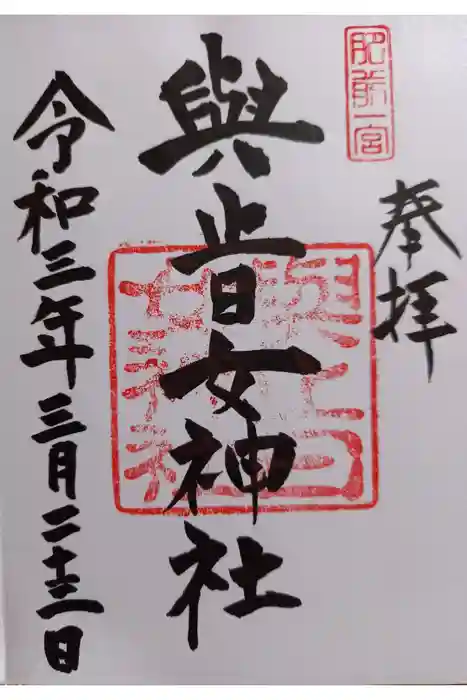 奉拝
肥前一宮
與止日女神社
令和三年三月二十三日